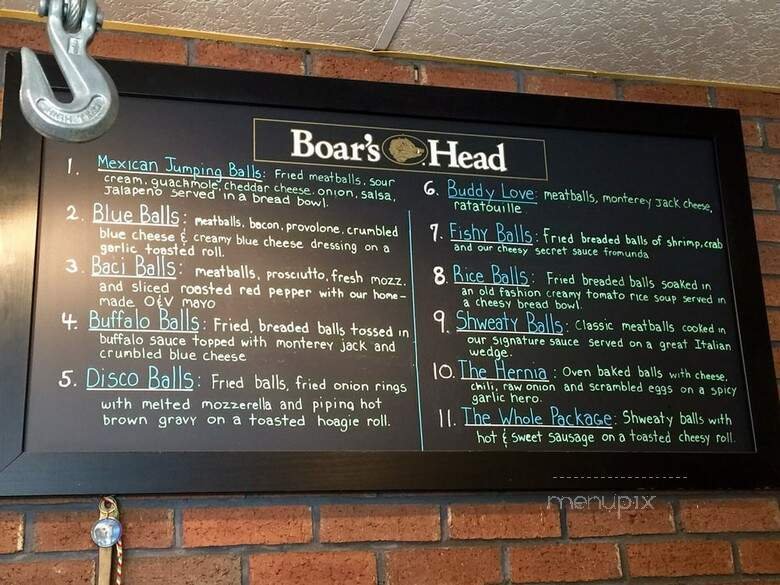 Boar's Head
1. Mexican Jumping Balls: Fried meatballs, sour
cream, guachmole, cheddar cheese, onion, salsa,
Jalapeño served in a bread bowl.
2. Blue Balls: meatballs, bacon, provolone, crumbled
blue cheese & creamy blue cheese dressing on a
garlic toasted roll.
3. Baci Balls: meatballs, prosciutto, fresh mozz.
and sliced roasted red pepper with our home-
made O&V mayo
4. Buffalo Balls: Fried, breaded balls tossed in
buffalo sauce topped with monterey jack and
crumbled blue cheese
5. Disco Balls: Fried balls, fried onion rings
with melted mozzerella and piping hot
brown gravy on a toasted hoagie roll.
6. Buddy Love: meatballs, monterey Jack cheese,
ratatouille
7. Fishy Balls: Fried breaded balls of shrimp, crab
and our cheesy secret sauce fromunda
8. Rice Balls: Fried breaded balls soaked in
an old fashion creamy tomato rice soup served in
a cheesy bread bowl.
9. Shweaty Balls: Classic meatballs cooked in
our signature sauce served on a great Italian
wedge.
10. The Hernia: Oven baked balls with cheese,
chili, raw onion and scrambled eggs on a spicy
garlic hero.
11. The Whole Package: Shweaty balls with
hot & sweet sausage on a toasted cheesy roll.
menupix